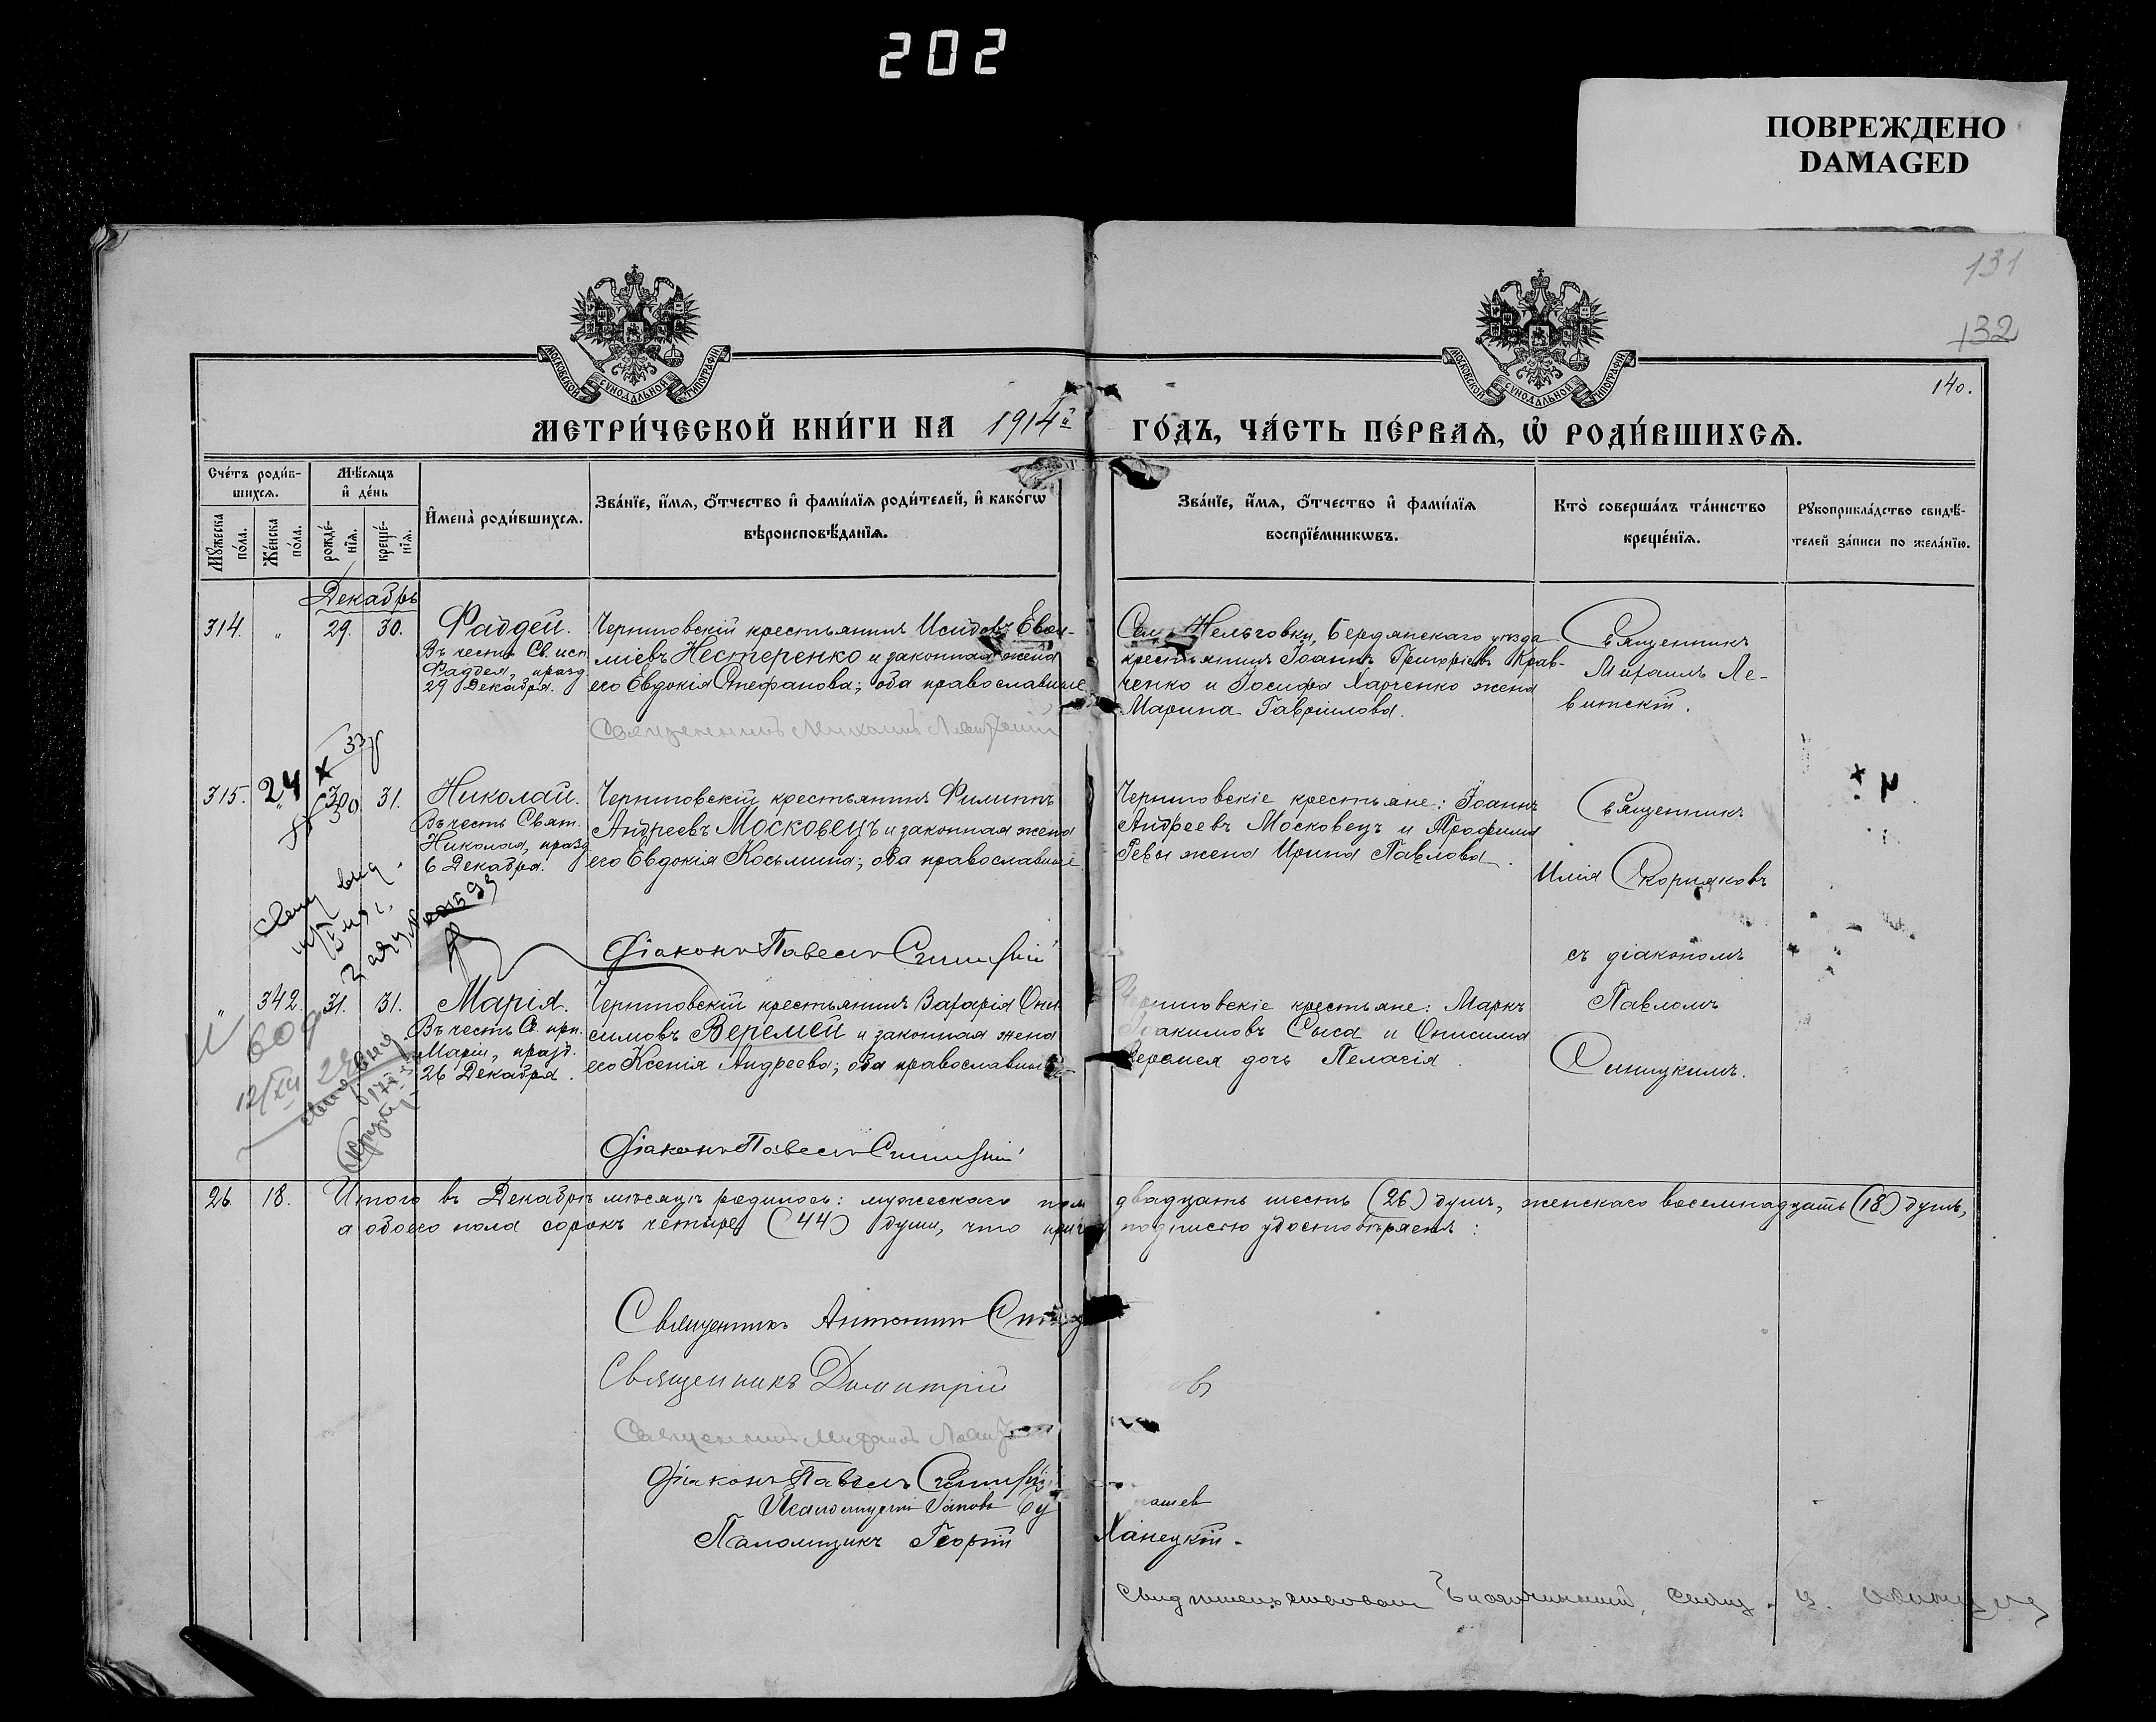 202
ПОВРЕЖДЕНО
DAMAGED
131
132
140.
МОСКОВСКОЙ СѴНОДАЛЬНОЙ ТИПОГРАФІИ
МОСКОВСКОЙ СѴНОДАЛЬНОЙ ТИПОГРАФІИ
МЕТРИ́ЧЕСКОЙ КНИ́ГИ НА 1914й ГО́ДЪ, ЧА́СТЬ ПЕ́РВАѦ, Ѡ҆ РОДИ́ВШИХСѦ.
Сче́тъ роди́в-
шихсѧ.
Мѣ́сѧцъ
и҆ де́нь
Мꙋ́жеска
по́ла.
Же́нска
по́ла.
рожде́-
нїѧ.
креще́-
нїѧ.
И҆мена̀ роди́вшихсѧ.
Зва́нїе, и҆́мѧ, ѻ҆́тчество и҆ фами́лїѧ роди́телей, и҆ како́гѡ
вѣроисповѣ́данїѧ.
Зва́нїе, и҆́мѧ, ѻ҆́тчество и҆ фами́лїѧ
воспрїе́мникѡвъ.
Кто̀ соверша́лъ та́инство
креще́нїѧ.
Рꙋкоприкла́дство свидѣ́-
телей за́писи по жела́нїю.
Декабрь
314. " 29. 30. Фаддей.
Въ честь Св. исп.
Фаддея, празд.
29 Декабря.
Черниговскій крестьянинъ Исидоръ Евѳи-
міевъ Нестеренко и законная жена
его Евдокія Стефанова; оба православные
Священникъ Михаилъ Левитскій
Нельговки, Бердянскаго уѣзда
крестьянинъ Іоаннъ Григоріевъ Крав-
ченко и Іосифа Харченко жена
Марина Гавріилова.
Священникъ
Михаилъ Ле-
витскій.
24
315. " 30 31. Николай.
Въ честь Свят.
Николая, празд.
6 Декабря.
Черниговскій крестьянинъ Филиппъ
Андреевъ Московецъ и законная жена
его Евдокія Косьмина; оба православные
Діаконъ Павелъ Синицкій
Черниговскіе крестьяне: Іоаннъ
Андреевъ Московецъ и Трофима
Ревы жена Ирина Павлова.
Священникъ
Илія Скорняковъ
съ діакономъ
Павломъ
Синицкимъ.
" 342. 31. 31. Марія.
Въ честь Св. прп.
Маріи, празд.
26 Декабря.
Черниговскій крестьянинъ Захарія Они-
симовъ Веремей и законная жена
его Ксенія Андреева; оба православные
Діаконъ Павелъ Синицкій
Черниговскіе крестьяне: Маркъ
Іоакимовъ Сыса и Онисима
Веремея дочь Пелагія.
12/XII
26. 18. Итого въ Декабрѣ мѣсяцѣ родилось: мужескаго пола двадцать шесть (26) душъ, женскаго восемнадцать (18) душъ,
а обоего пола сорокъ четыре (44) души, что подписью удостовѣряемъ:
Священникъ Антоній
Священникъ Димитрій
Священникъ Михаилъ Левитскій
Діаконъ Павелъ Синицкій
Псаломщикъ
Псаломщикъ Георгій Ханецкій.
Свидѣтельствовалъ Благочинный, Свящ.